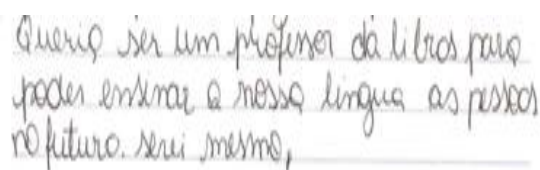 Queria ser um professor da libras para
poder ensinar a nossa lingua as pessoas
no futuro. serei mesmo,